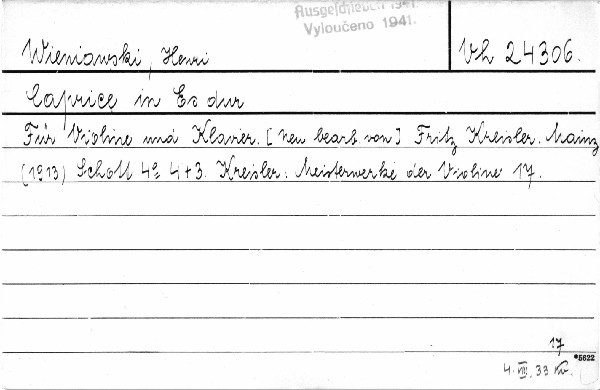 Ausgeschieden 1941.
Vyloučeno 1941.
Wieniawski, Henri
Vh 24306.
Caprice in Es dur
Für Violine und Klavier. [Neu bearb. von] Fritz Kreisler. Mainz
(1913) Schott 4º 4+3. Kreisler: Meisterwerke der Violine 17.
17
*5622
4. VIII. 33